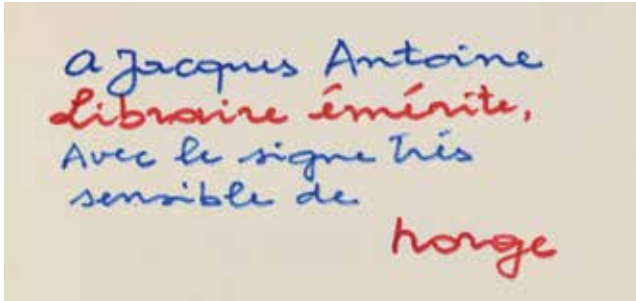 a Jacques Antoine
Libraire émérite,
Avec le signe très
sensible de
norge